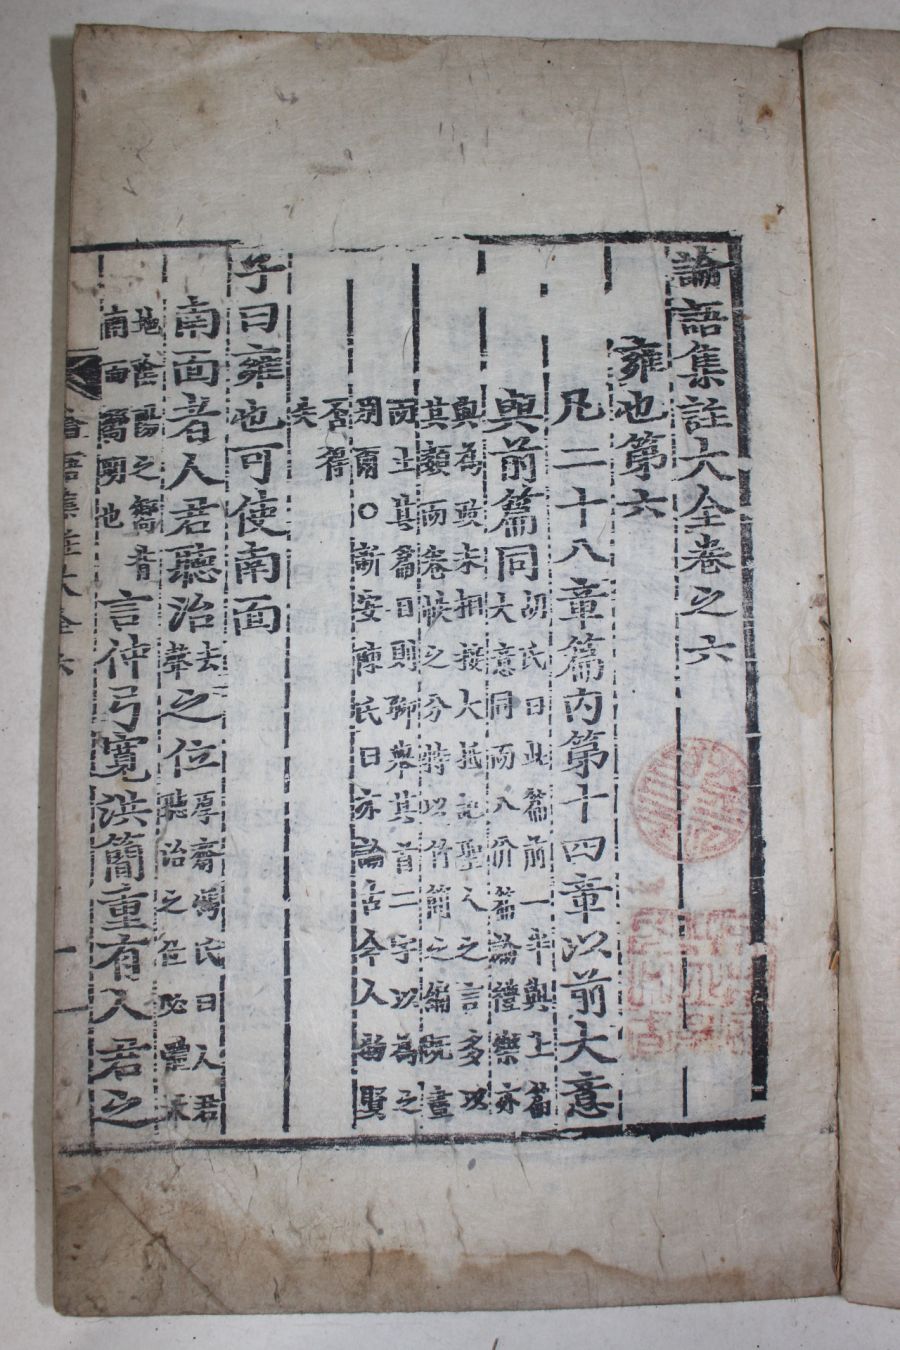 論語集註大全卷之六
雍也第六
凡二十八章篇內第十四章以前大意
與前篇同
胡氏曰此篇前一半與上篇
大意同而八佾篇論禮樂亦
與為政末相接大抵記聖人之言多以
其類而卷帙之分特以竹簡之編既盡
而止其篇目則聊舉其首二字以為之
別爾○新安陳氏曰亦論古今人物賢
否得
失
子曰雍也可使南面
南面者人君聽治
去
聲
之位
厚齋馮氏曰人君
聽治之位必體
地陰陽之嚮背
南面嚮明也
言仲弓寬洪簡重有人君之
論語集註大全 六
一